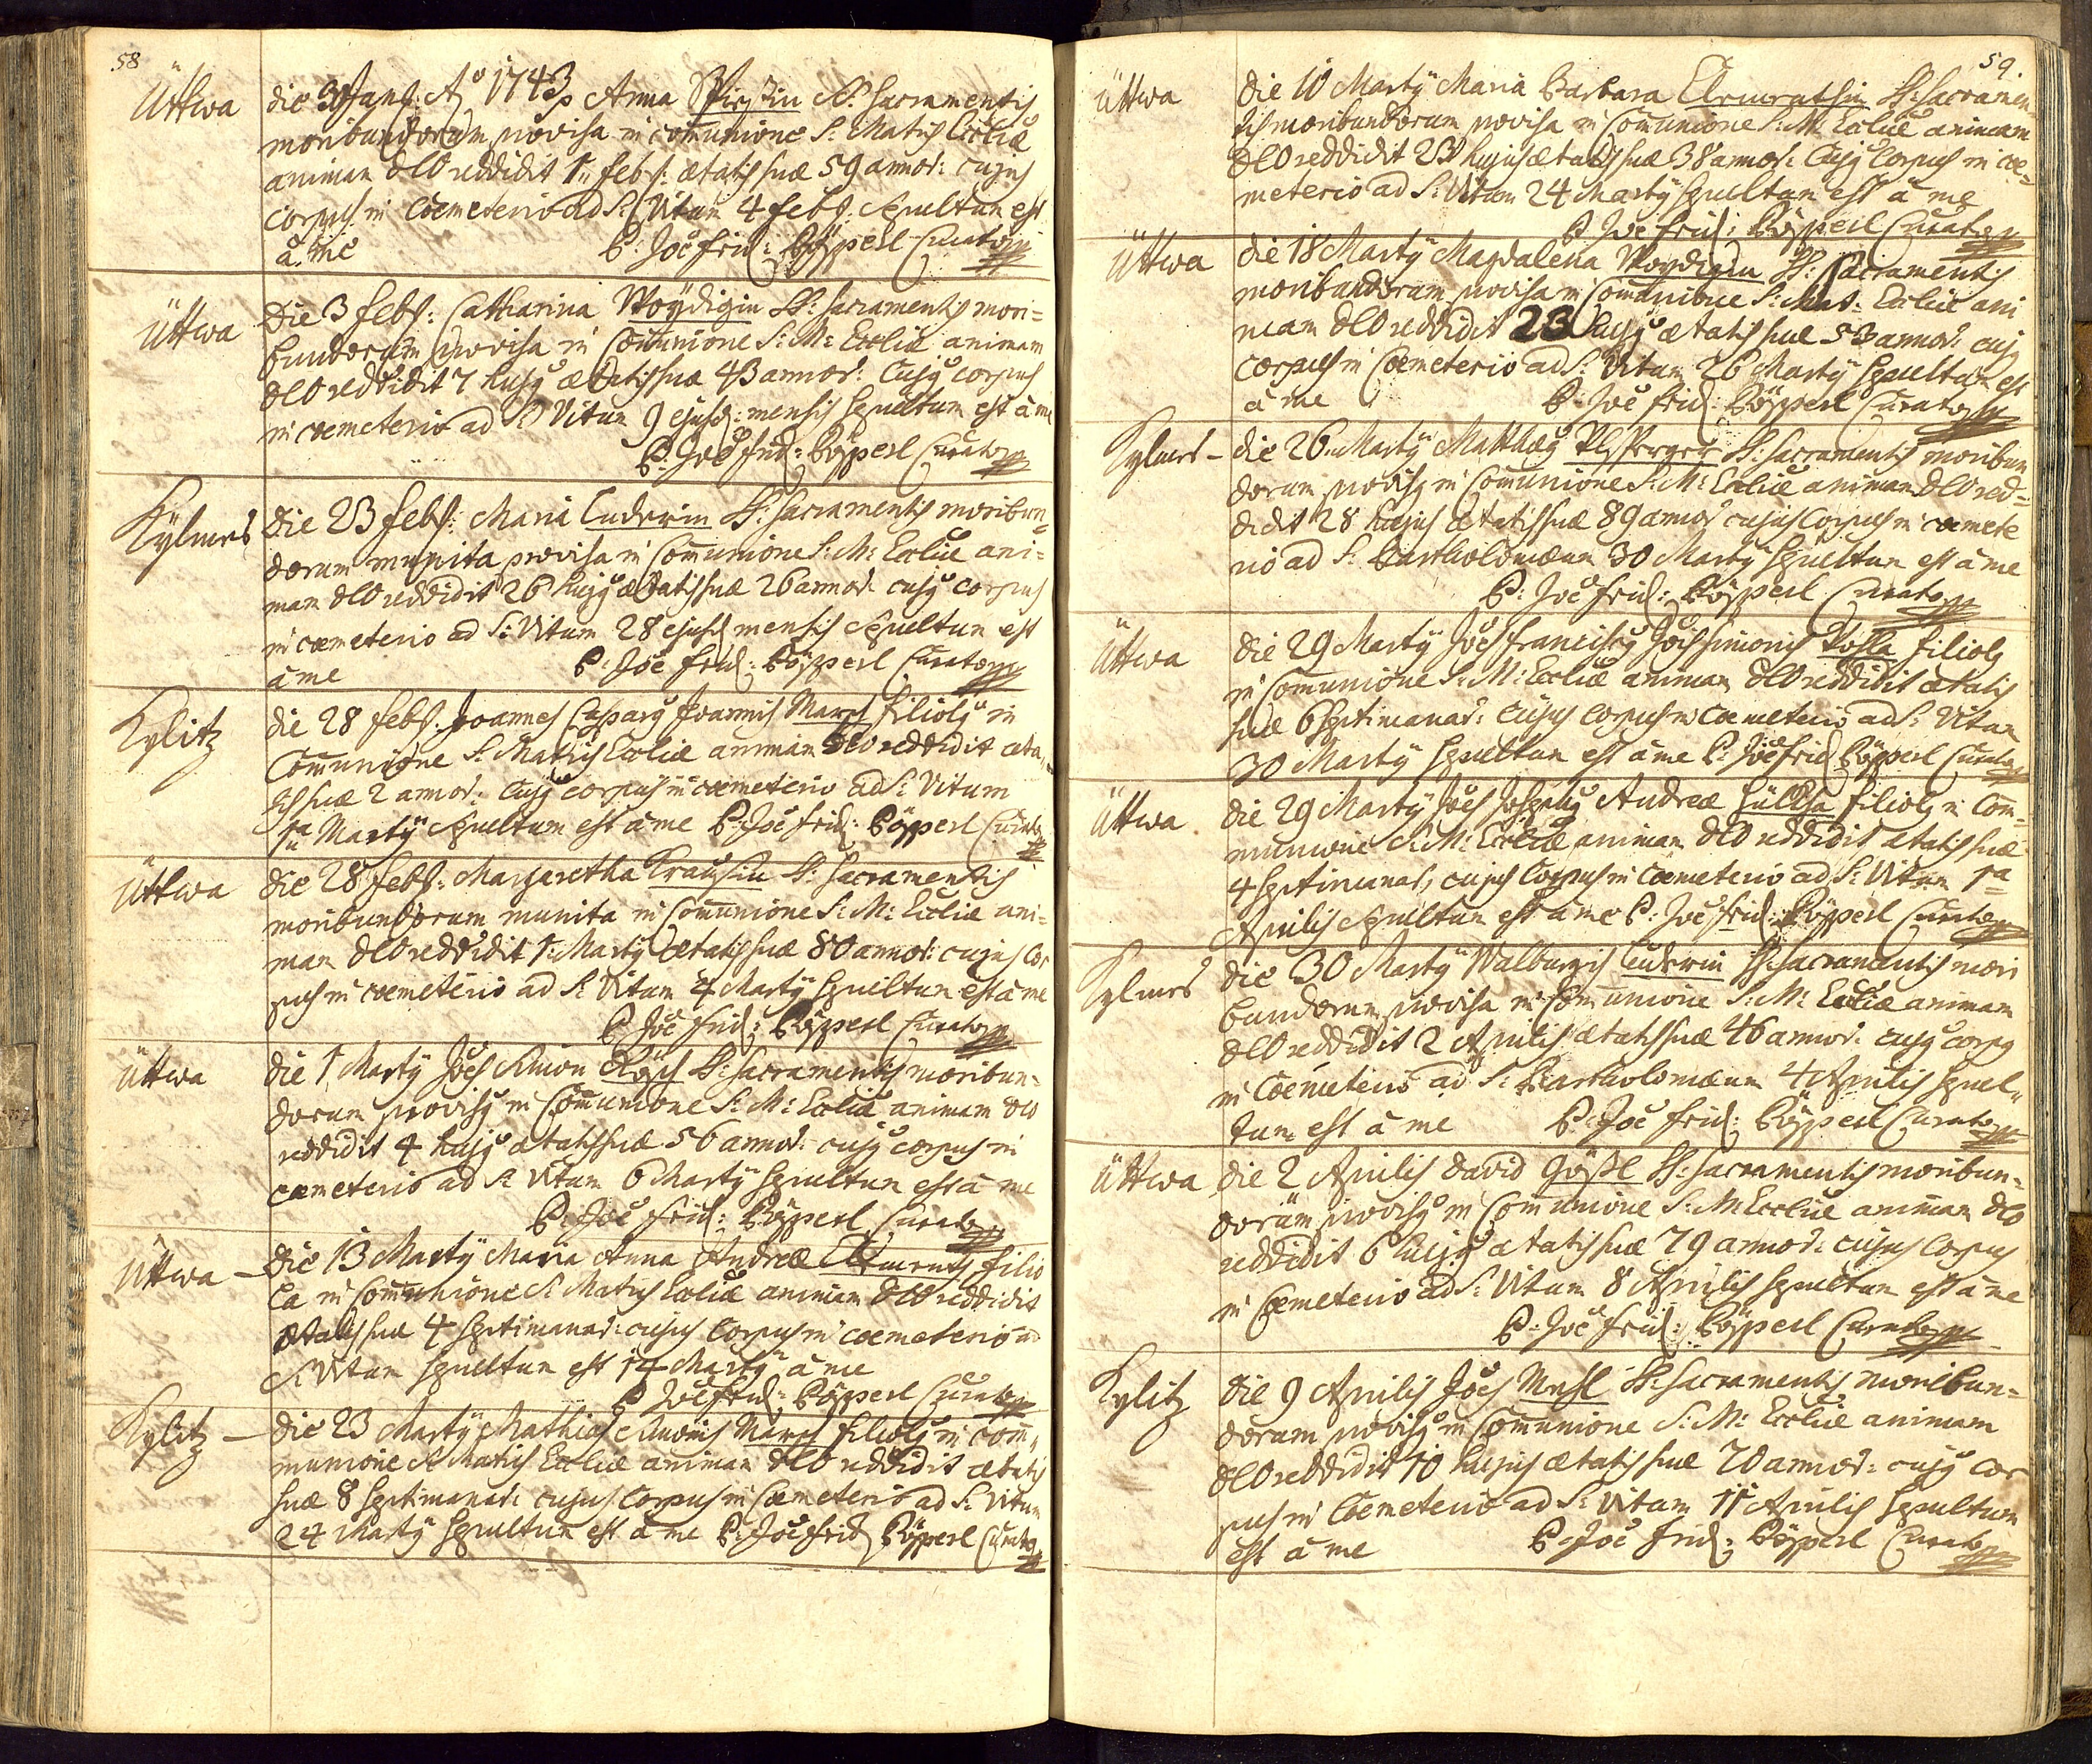 58
Üttwa
die 30 Janʳ: Aº 1743 Anna SS: Sacramentis
moribundorum provisa in communione S: Matris Eccliæ
animam DEO reddidit 1ª febʳ: ætatis suæ 59 annor: cujus
corpus in Coemeterio ad S: Vitum 4 febʳ: sepultum est
à me P: Joē frid: Pöpperl Curato
Üttwa
Die 3 febʳ: Catharina Woydigin SS: Sacramentis mori=
bundorum provisa in Communione S: M: Eccliæ animam
DEO reddidit 7 hujꝰ ætatis suæ 43 annor: Cujꝰ corpus
in coemeterio ad S: Vitum 9 ejusd: mensis sepultum est à me
P: Joē frid: Pöpperl Curato
Kylmes
Die 23 febʳ: Maria Luderin SS: Sacramentis moribun=
dorum munita provisa in Communione S: M: Eccliæ ani=
mam DEO reddidit 26 hujꝰ ætatis suæ 26 annor: cujꝰ corpus
in coemeterio ad S: Vitum 28 ejusd mensis sepultum est
à me P: Joē frid: Pöpperl Curato
Kylitz
die 28 febʳ: Joannes Casparꝰ Joannis March filiolꝰ in
Communione S: Matris Eccliæ animam DEO reddidit æta=
tis suæ 2 annor: Cujꝰ corpus in coemeterio ad S: Vitum
1ª Martÿ sepultum est à me P: Joē frid: Pöpperl Curato
Üttwa
die 28 febʳ: Margaretha Krausin SS: Sacramentis
moribundorum munita in Communione S: M: Eccliæ ani=
mam DEO reddidit 1: Martÿ ætatis suæ 80 annor: cujus cor
pus in coemeterio ad S: Vitum 4 Martÿ sepultum est à me
P Joē frid: Pöpperl Curato
Üttwa
die 1 Martÿ Joēs Simon SS: Sacramentis moribun=
dorum provisꝰ in Communione S: M: Eccliæ animam DEO
reddidit 4 hujꝰ ætatis suæ 56 annor: cujꝰ corpus in
coemeterio ad S: Vitum 6 Martÿ sepultum est à me
P: Joē frid: Pöpperl Curato
Üttwa
Die 13 Martÿ Maria Anna Andreæ filio
la in Communione S: Matris Eccliæ animam DEO reddidit
ætatis suæ 4 septimanar: cujus corpus in coemeterio ad
S: Vitum sepultum est 14 Martÿ à me
P Joē frid: Pöpperl Curato
Kylitz
die 23 Martÿ Mathias Simonis March filiolꝰ in Com=
munione S: Matris Eccliæ animam DEO reddidit ætatis
suæ 8 septimanar: cujus corpus in Coemeterio ad S: Vitum
24 Martÿ sepultum est à me P: Joē frid Pöpperl Curato
59.
Üttwa
Die 10 Martÿ Maria Barbara SS: Sacramen=
tis moribundorum provisa in Communione S: M: Eccliæ animam
DEO reddidit 23 hujus ætatis suæ 38 annor: Cujꝰ corpus in coe=
meterio ad S: Vitum 24 Martÿ sepultum est à me
P Joē frid: Pöpperl Curato
Üttwa
die 18 Martÿ Magdalena Woydigin SS: Sacramentis
moribundorum provisa in Communione S: Mat: Eccliæ ani
mam DEO reddidit 23 hujꝰ ætatis suæ 53 annor: cujꝰ
corpus in Coemeterio ad S: Vitum 26 Martÿ sepultum est
à me P: Joē frid: Pöpperl Curato
Kylmes
die 26 Martÿ Matthæꝰ SS: Sacramentis moribun
dorum provisꝰ in Communione S: M: Eccliæ animam DEO red=
didit 28 hujus ætatis suæ 89 annor cujus corpus in coemete
rio ad S: Bartholomæum 30 Martÿ sepultum est à me
P: Joē frid: Pöpperl Curato
Üttwa
die 29 Martÿ Joēs franciscꝰ Joēs Simonis filiolꝰ
in Communione S: M: Eccliæ animam DEO reddidit ætatis
suæ 6 septimanar: cujus corpus in Coemeterio ad S: Vitum
30 Martÿ sepultum est à me P: Joē frid Pöpperl Curato
Üttwa
die 29 Martÿ Joēs Josephꝰ Andreæ filiolꝰ in Com=
munione S: M: Eccliæ animam DEO reddidit ætatis suæ
4 septimanar, cujus corpus in Coemeterio ad S: Vitum 1ª
Aprilis sepultum est à me P: Joē frid: Pöpperl Curato
Kylmes
die 30 Martÿ Walburgis Luderin SS: Sacramentis mori
bundorum provisa in Communione S: M: Eccliæ animam
DEO reddidit 2 Aprilis ætatis suæ 46 annor: cujꝰ corpꝰ
in Coemeterio ad S: Bartholomæum 4 Aprilis sepul=
tum est à me P: Joē frid: Pöpperl Curato
Üttwa
die 2 Aprilis David Gößl SS: Sacramentis moribun=
dorum provisꝰ in Communione S: M Eccliæ animam DEO
reddidit 6 hujꝰ ætatis suæ 79 annor: cujus corpus
in Coemeterio ad S: Vitum 8 Aprilis sepultum est à me
P: Joē frid: Pöpperl Curato
Kylitz
die 9 Aprilis Joēs SS: Sacramentis moribun=
dorum provisꝰ in Communione S: M: Eccliæ animam
DEO reddidit 10 hujus ætatis suæ 70 annor: cujꝰ cor
pus in Coemeterio ad S: Vitum 11 Aprilis sepultum
est à me P: Joē frid: Pöpperl Curato